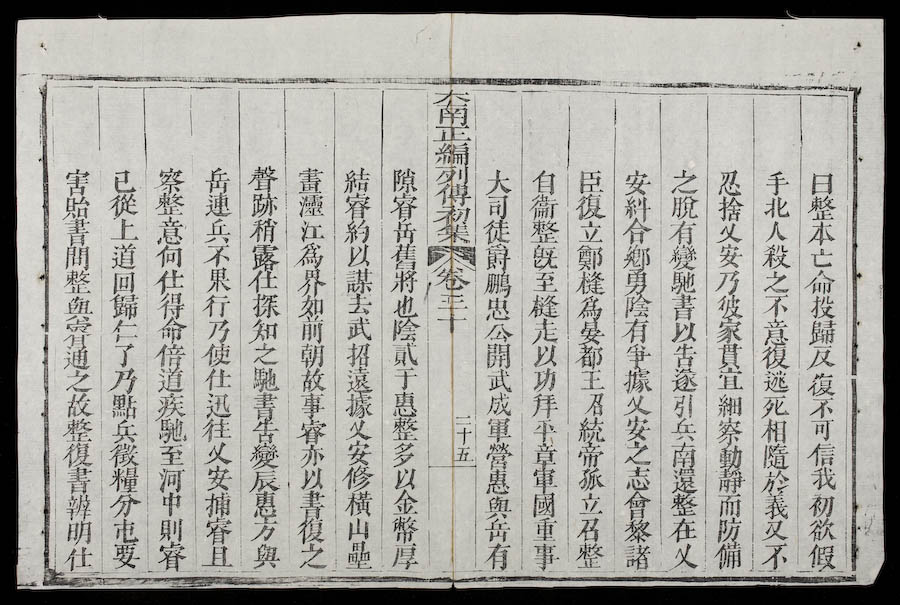 曰整本亡命投歸反復不可信我初欲假
手北人殺之不意復逃死相隨於義又不
忍捨乂安乃彼家貫宜細察動靜而防備
之脫有變馳書以告遂引兵南還整在乂
安糾合鄉勇陰有爭據乂安之志會黎諸
臣復立鄭槰爲晏都王召統帝孤立召整
自衞整旣至槰走以功拜平章軍國重事
大司徒爵鵬忠公開武成軍營惠與岳有
大南正編列傳初集 卷三十 二十五
隙睿岳舊將也陰貳于惠整多以金幣厚
結睿約以謀去武招遠據乂安修橫山壘
畫𤅷江爲界如前朝故事睿亦以書復之
聲跡稍露仕探知之馳書告變辰惠方與
岳連兵不果行乃使仕迅往乂安捕睿且
察整意何仕得命倍道疾馳至河中則睿
已從上道回歸仁了乃點兵徵糧分屯要
害貽書問整與睿通之故整復書辨明仕